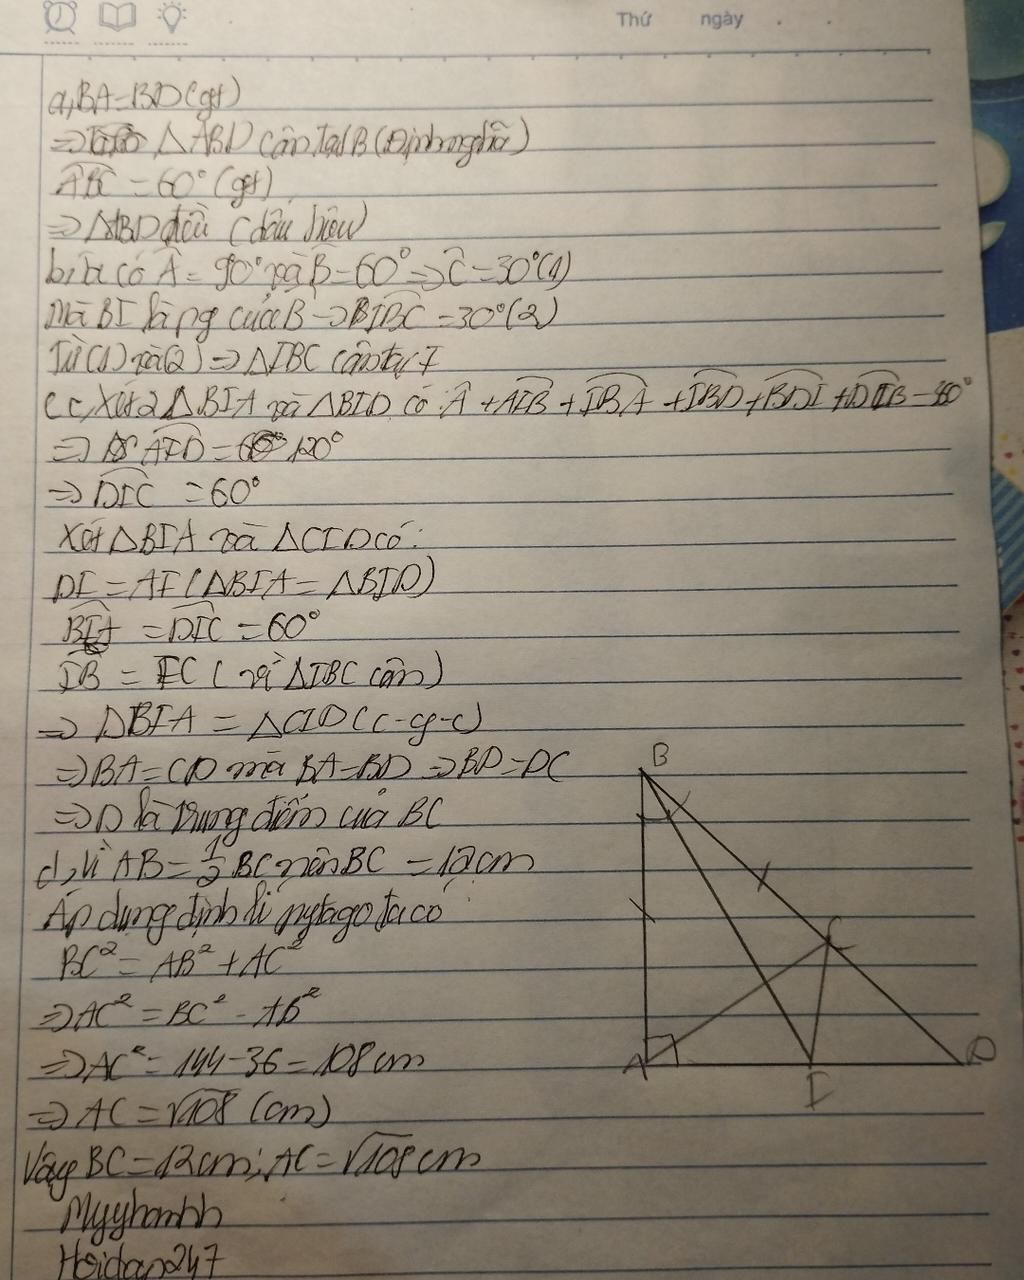 Thứ ngày . .
a, BA=BD(gt)
=> △ABD cân tại B (Định nghĩa)
ABC = 60° (gt)
=> △ABD đều (dấu hiệu)
b, ta có A = 90° và B = 60° => C = 30° (1)
Mà BI là pg của B -> BIBC = 30° (2)
Từ (1) và (2) => △IBC cân tại I
c, Xét 2 △BIA và △BID có A + AIB + IBA + IBD + BDI + DIB = 360°
=> AID = 120°
=> DIC = 60°
Xét △BIA và △CID có:
DI = AI (△BIA = △BID)
BIA = DIC = 60°
IB = IC (vì △IBC cân)
=> △BIA = △CID (c-g-c)
=> BA = CD mà BA=BD => BD=DC
=> D là trung điểm của BC
d, Vì AB = 1/2 BC nên BC = 12cm
Áp dụng định lí pytago ta có
BC² = AB² + AC²
=> AC² = BC² - AB²
=> AC² = 144 - 36 = 108 cm
=> AC = √108 (cm)
Vậy BC = 12cm; AC = √108 cm
Myyhanhh
Hoidap247
B
C
A
D
I